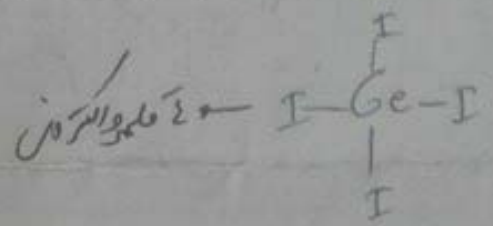 I
٤ قلمرو الکترونی ← I—Ge—I
I